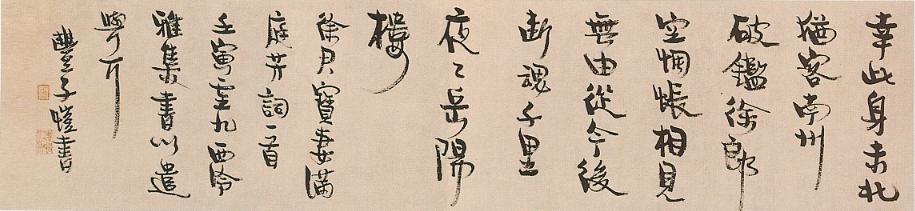 幸此身未北
猶客南州
破鑑徐郎
空惆悵相見
無由從今後
断魂千里
夜々岳陽
樓
徐君寶妻滿
庭芳詞一首
壬寅重九西泠
雅集書以遣
興
豐子愷書